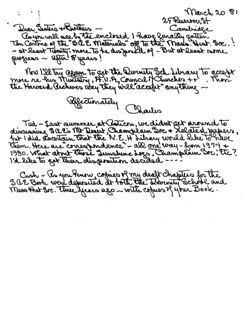 March 20 81
25 Reservoir St
Cambridge
Dear Sisters & Brothers –
As you will see by the enclosed, I have finally gotten
ten Cartons of the S.C.E. Materials off to the Mass. Hist. Soc.!
– at least twenty more to be disposed of – But at least some
progress – after 8 years!
Now I'll try again to get the Divinity Sch. Library to accept
more re: Ministry, Council of Churches – Then
the Harvard Archives say they will accept anything –
Affectionately
Charles
Ted – Last summer at we didn't get around to
discussing SCE's Mt Desert Champlain Soc & related papers,
but I did mention that the N.E.H. Library would like to have
them. Here are correspondence – all one way – from 1974 &
1980. What about those Sunshine Logs, Champlain Soc. Etc?
I'd like to get their disposition decided ––––
Cush – As you know copies of my draft chapters for the
SCE Book were deposited at both the Divinity School and
Mass Hist Soc. three years ago – with copies of your Book.